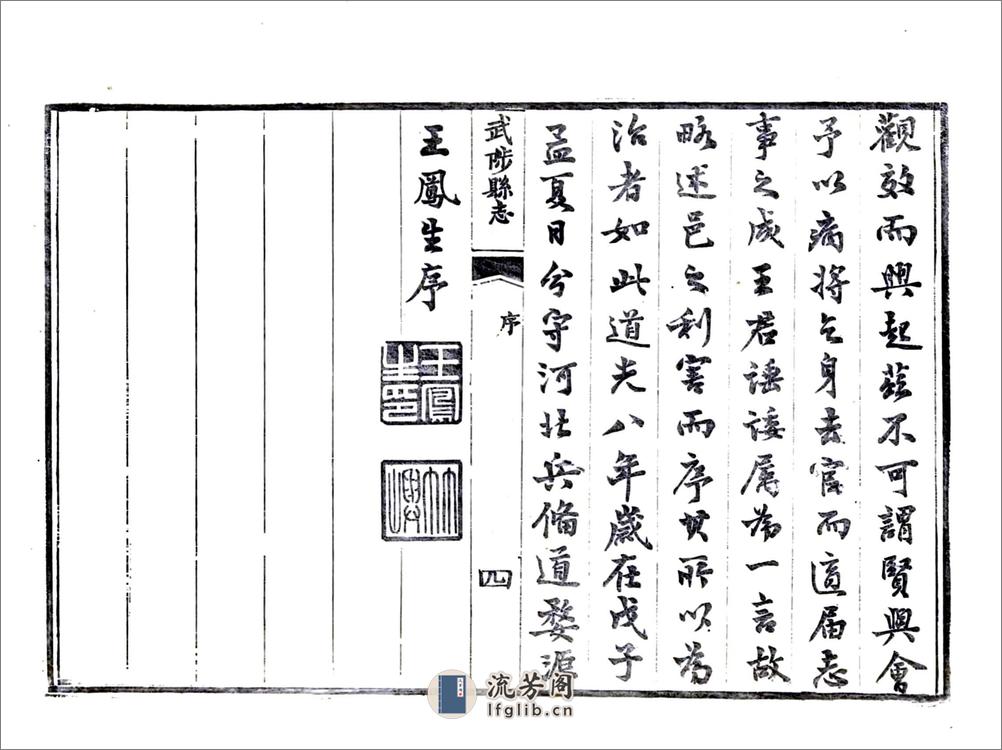 觀效而興起茲不可謂賢與會
予以病將乞身去官而適屆志
事之成王君諈諉屬為一言故
略述邑之利害而序其所以為
治者如此道光八年歲在戊子
孟夏日分守河北兵備道婺源
武陟縣志
序
四
王鳳生序
王鳳生印
竹嶼
流芳阁
lfglib.cn